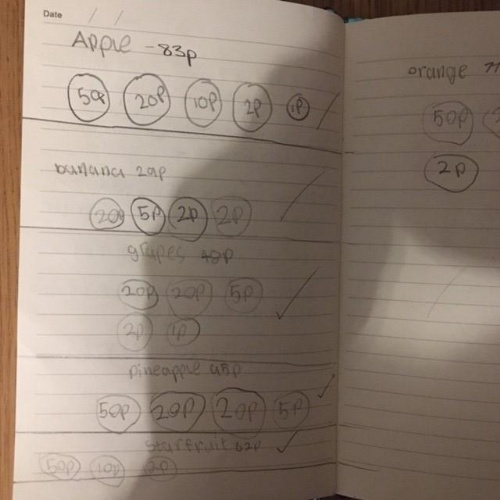 Date / /
Apple - 83p
50p 20p 10p 2p 1p
banana 29p
20p 5p 2p 2p
grapes 48p
20p 20p 5p
2p 1p
pineapple 95p
50p 20p 20p 5p
starfruit 62p
50p 10p 2p
orange
50p
2p